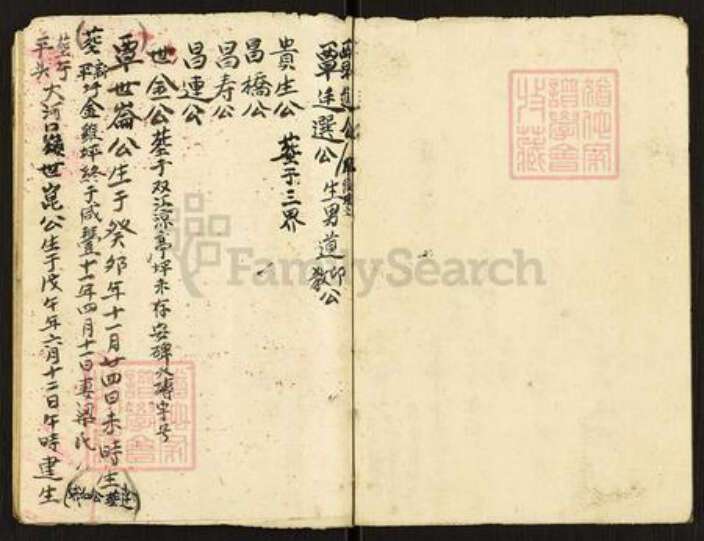 覃廷選公 生男道印公
教
貴生公 葬于三界
昌橋公
昌寿公
昌連公
世金公葬于双江凉亭坪未存安碑火磚字号
覃世崙公生于癸卯年十一月廿四日未時生
葬于金雞坪終于咸豐十一年四月十一日妻梁氏
葬于大河口
世崑公生于戊午年六月十二日午時建生
FamilySearch